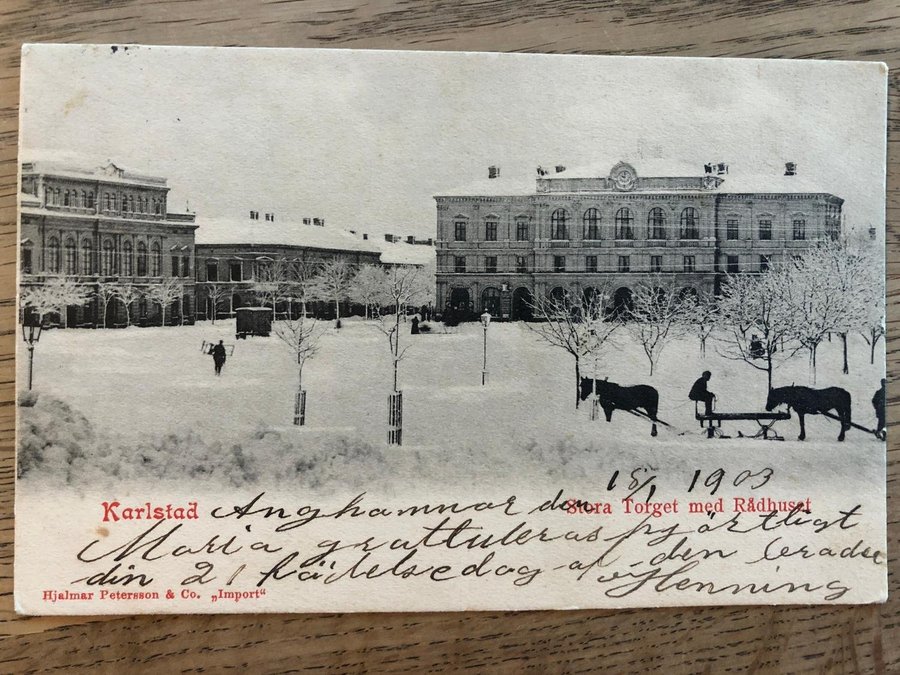 18/1 1903
Karlstad Anghamnar den Stora Torget med Rådhuset
Maria gratuleras hjärtligt
din 21 födelsedag af den
Henning
Hjalmar Petersson & Co. „Import“